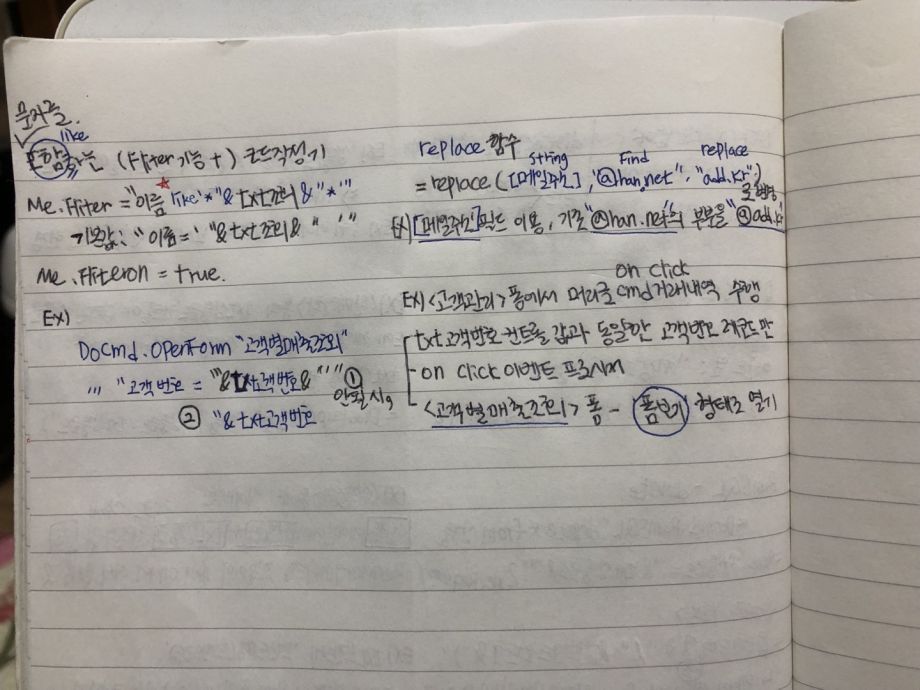 문자를
like
포함하는 (Filter 기능 + ) 코드작성기
Me.Filter = "이름 like '*" & txt조회 & "*'"
기본값: "이름 = '" & txt조회 & "'"
Me.Filteron = true.
EX)
DoCmd.OpenForm "고객별매출조회"
,,, "고객번호 = '" & txt고객번호 & "'" ①
안될시,
② " & txt고객번호
replace 함수
string Find replace
= replace([메일주소], "@han.net", "add.kr")
로 변경
EX) [메일주소]필드 이용, 기존 "@han.net"의 부분을 "@add.kr
on click
EX) <고객관리> 폼에서 머리글 cmd거래내역 수행
txt고객번호 컨트롤 값과 동일한 고객번호 레코드만
on click 이벤트 프로시저
<고객별매출조회> 폼 - 폼보기 형태로 열기